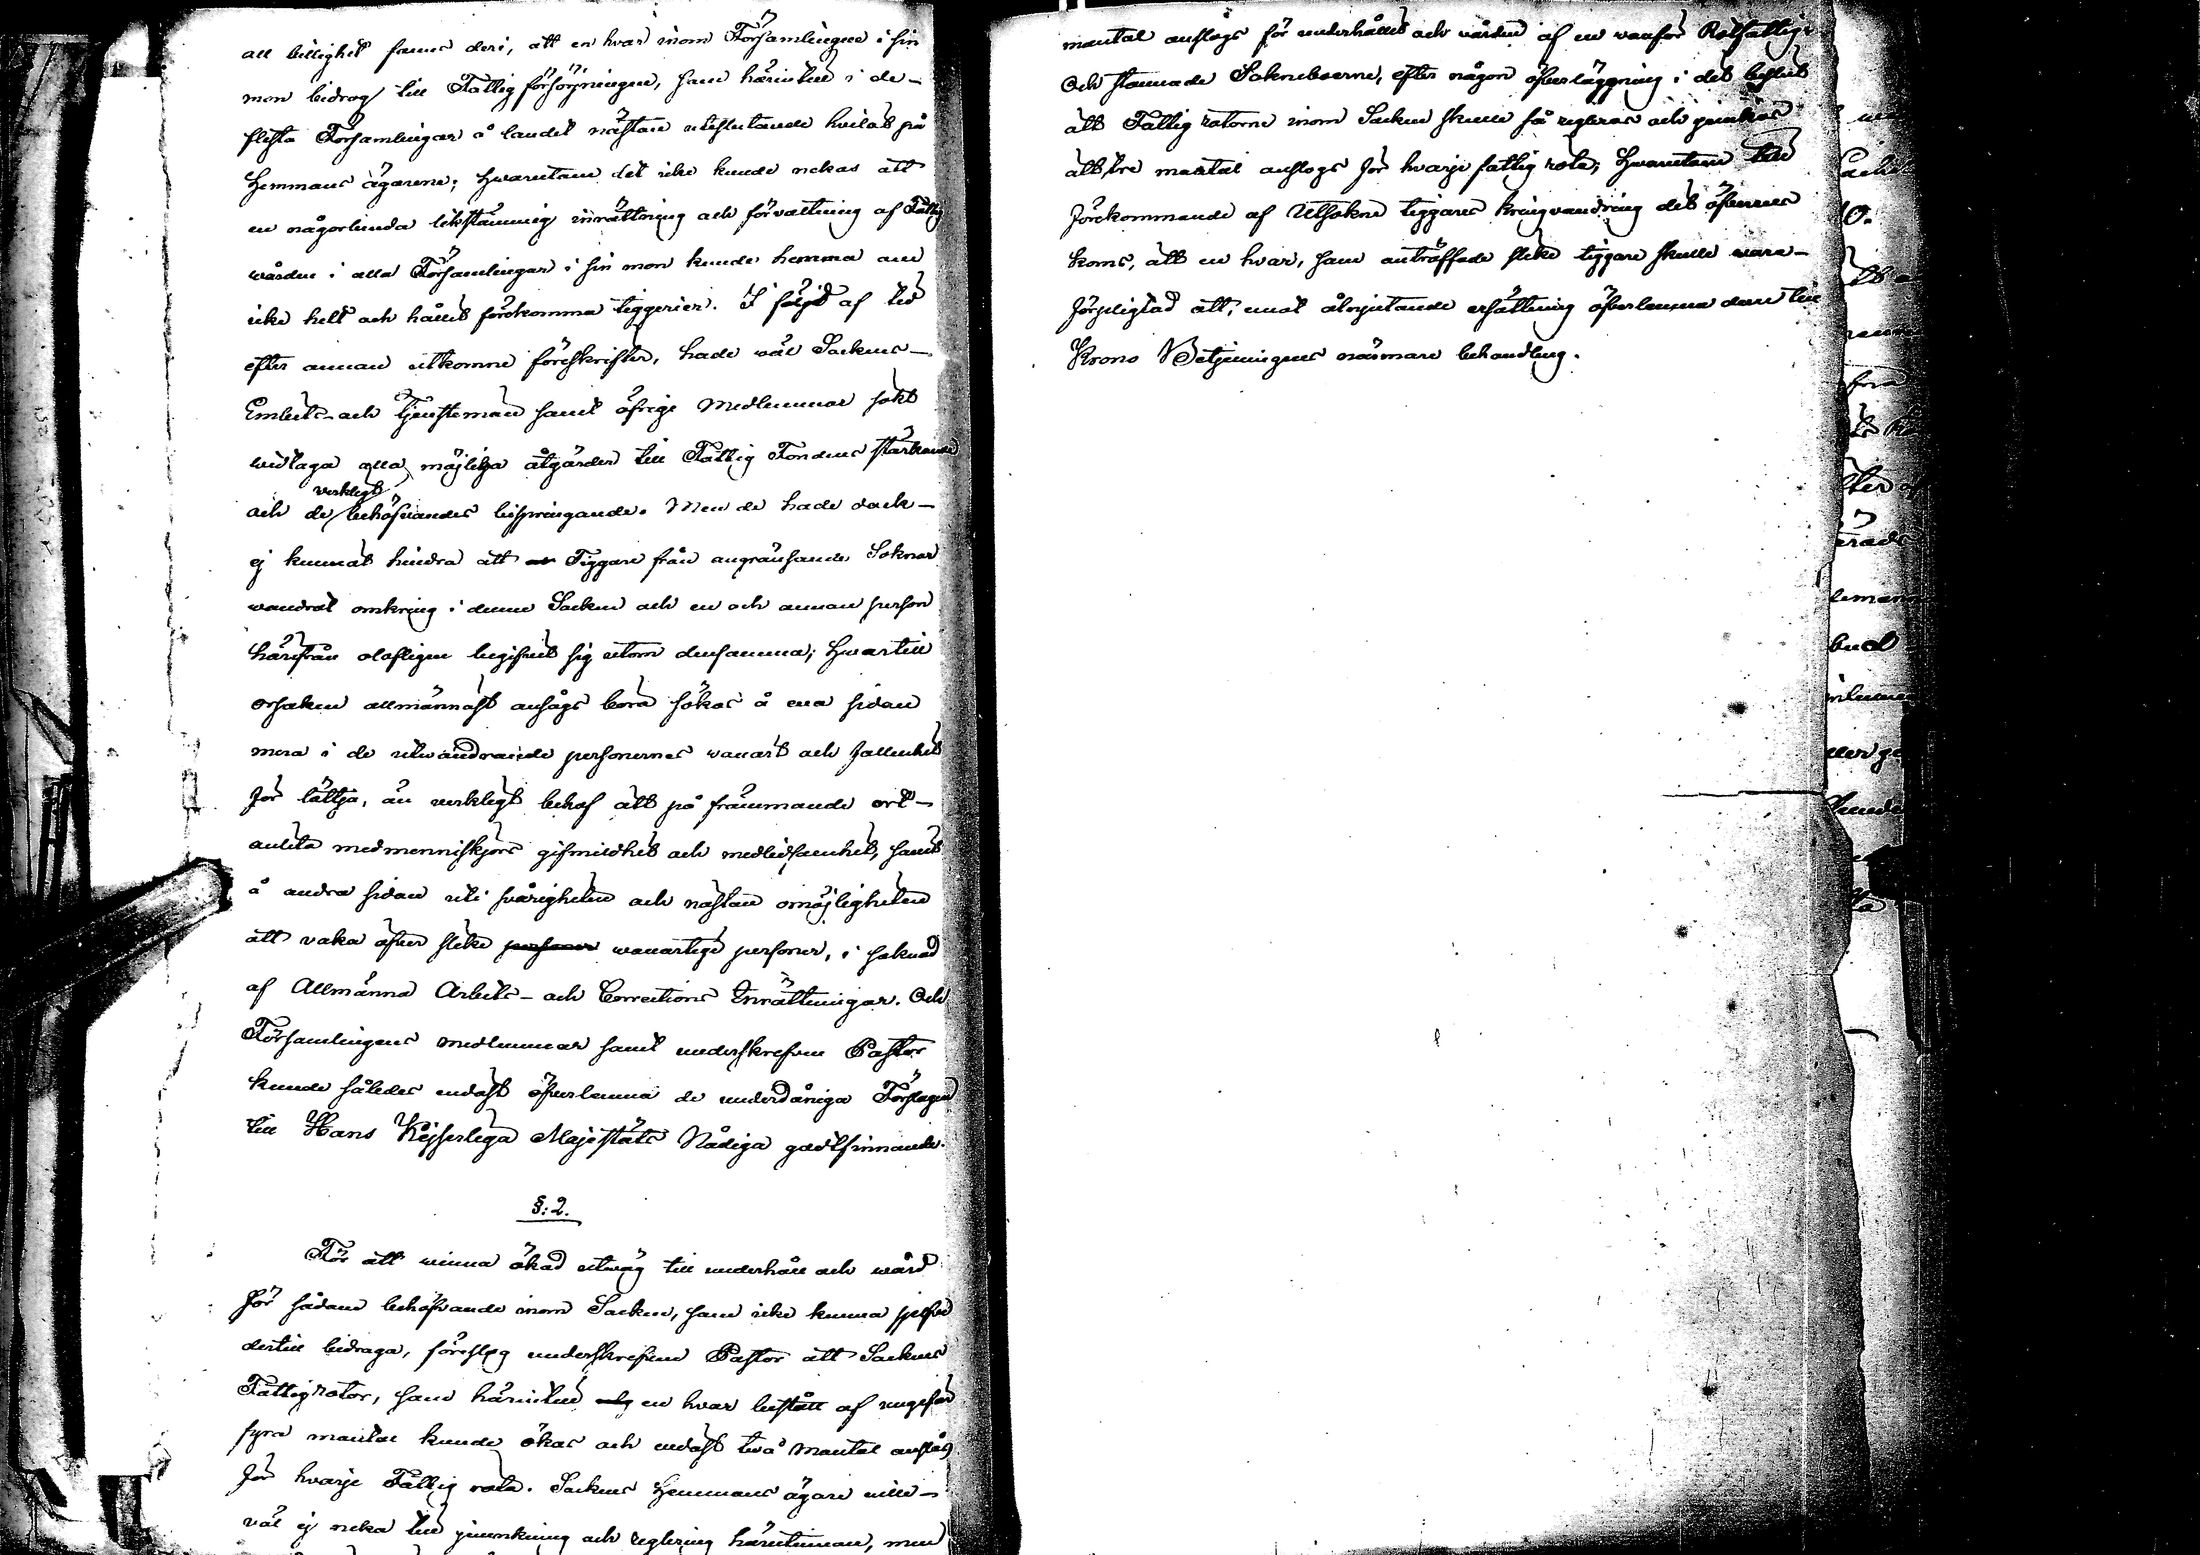 all billighet fanns deri, att en hvar inom Församlingen i sin
mon bidrog till Fattigförsörjningen, som härintill i de-
flesta Församlingar å landet nästan uteslutande hvilat på
Hemmans ägarene; hwarutom det icke kunde nekas att
en någorlunda likstämmig inrättning och förvaltning af Fattig
wården i alla Församlingar i sin mon kunde hemma om
icke helt och hållet förekomma tiggerier. I följd af tid
efter annan utkomne föreskrifter, hade wäl Socknes-
Embets- och Tjenstemän samt öfrige Medlemmar sökt
widtaga alla möjliga åtgärder till Fattig Fondens stärkande
och de verkligt behöfvandes bispringande. Men de hade dock-
ej kunnat hindra att Tiggare från angränsande Soknar
wandrat omkring i denne Socken och en och annan person
härifrån olofligen begifvit sig utom densamma; Hwartill
orsaken allmännast ansågs bora sökas å ena sidan
mera i de utwandrande personernes wanart och fallenhet
för lättja, än verkligt behof att på främmande ort-
anlita medmenniskjors gifmildhet och medlidsamhet, samt
å andra sidan uti svårigheten och nästan omöjligheten
att vaka öfver slike personer wanartige personer, i saknad
af Allmänna Arbets- och Corrections Inrättningar. Och
Församlingens medlemmar samt underskrefven Pastor
kunde således endast öfverlemna de underdåniga Förslagen
till Hans Kejserliga Majestäts Nådiga godtfinnande.
§: 2.
För att winna ökad utwäg till underhåll och wård
för sådane behöfvande inom Socken, som icke kunna sjelfve
dertill bidraga, föreslog underskrefvne Pastor att Socknes
Fattigrotor, som härintill en hvar bestått af ungefär
fyra mantal kunde ökas och endast två Mantal anslås
för hvarje Fattig rota. Socknes Hemmans ägare wille-
väl ej neka till jemnkning och reglering härutinnan, men
mantal anslogs för underhållet och vården af en vanför Rotfattig.
Och stannade Sokneboerne, efter någon öfverläggning i det beslut
att Fattig rotorne inom Socken skulle så regleras och jemkas
att tre mantal anslogs för hvarje fattig rota; Hwarutom till
förekommande af Utsokne tiggares kringvandring det öfverens
koms, att en hvar, som anträffade slike tiggare skulle wara-
förpligtad att, emot åtnjutande ersättning öfverlemna dem till
Krono Betjeningens närmare behandling.